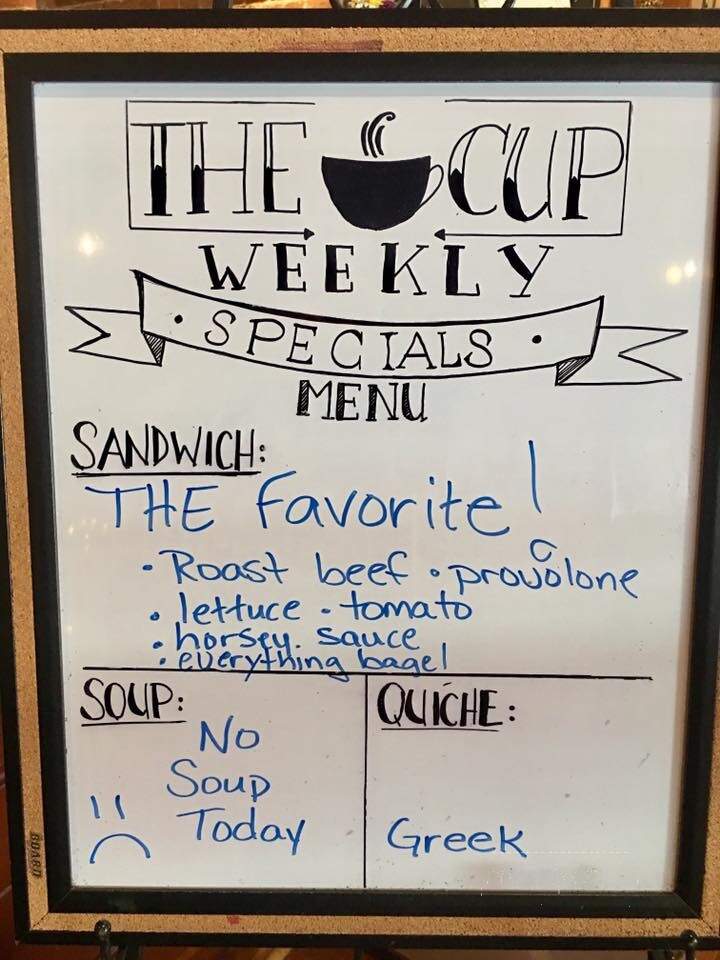 THE CUP
WEEKLY
• SPECIALS •
MENU
SANDWICH:
THE favorite!
• Roast beef • provolone
• lettuce • tomato
• horsey sauce
• everything bagel
SOUP:
No
Soup
Today
QUICHE:
Greek
BOARD